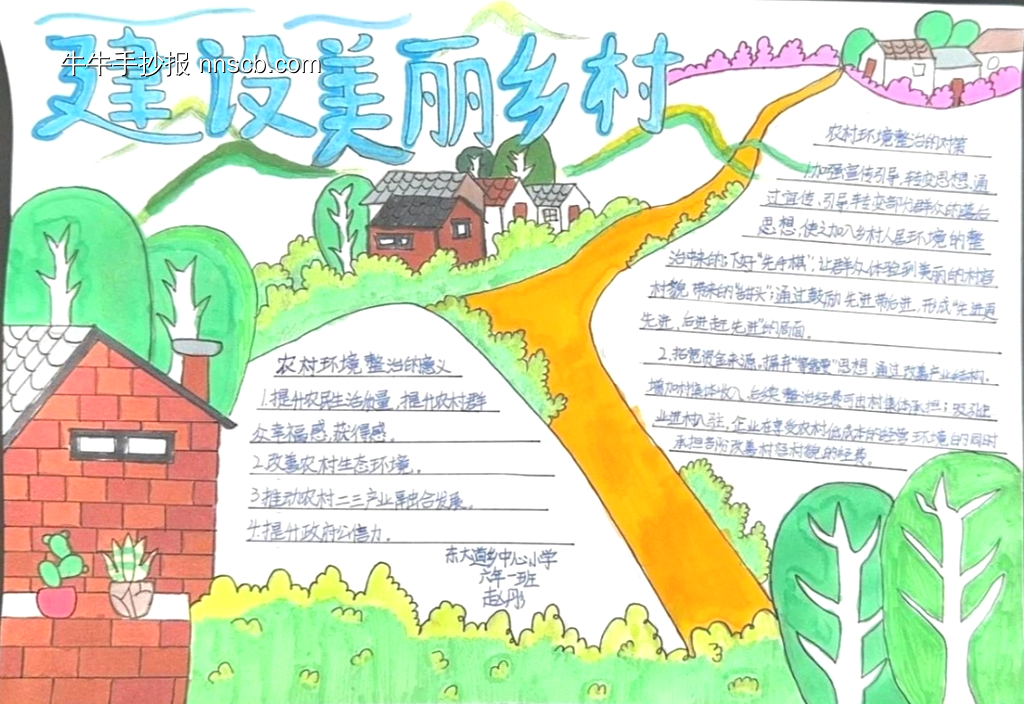 建设美丽乡村
牛牛手抄报 nnscb.com
农村环境整治的意义
1.提升农民生活质量,提升农村群
众幸福感,获得感。
2.改善农村生态环境。
3.推动农村二三产业融合发展。
4.提升政府公信力。
东大道乡中心小学
六年一班
赵彤
农村环境整治的对策
1.加强宣传引导,转变思想,通
过宣传、引导转变部分群众的落后
思想,使之加入乡村人居环境的整
治中来的;下好"先手棋",让群众体验到美丽的村容
村貌带来的"甜头";通过鼓励先进带后进,形成"先进更
先进,后进赶先进"的局面。
2.拓宽资金来源。摒弃"等靠要"思想,通过改善产业结构,
增加村集体收入,后续整治经费可由村集体承担;吸引企
业进村入驻,企业在享受农村低成本的经营环境的同时
承担着改善村容村貌的经费。